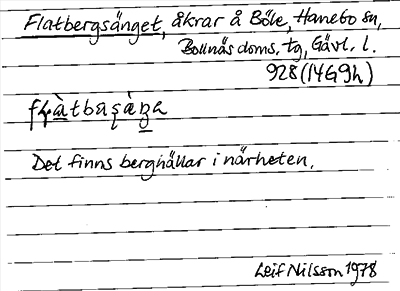 Flatbergsänget, åkrar å Böle, Hanebo sn,
Bollnäs doms. tg, Gävl. l.
928 (14G9h)
Det finns berghällar i närheten.
Leif Nilsson 1978